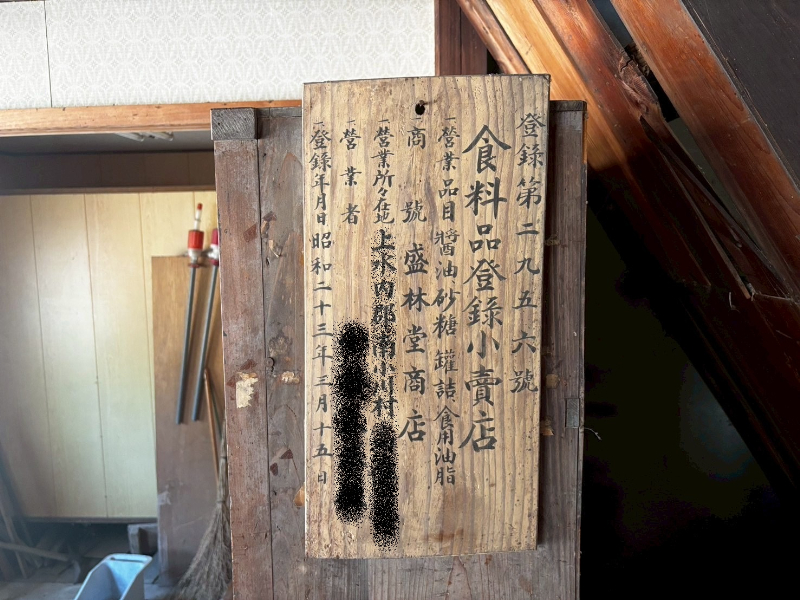 登録第二九五六號
食料品登錄小賣店
一營業品目 醬油 砂糖 罐詰 食用油脂
一商號 盛林堂商店
一營業所々在地 上水内郡南小川村
一營業者
一登錄年月日 昭和二十三年三月十五日